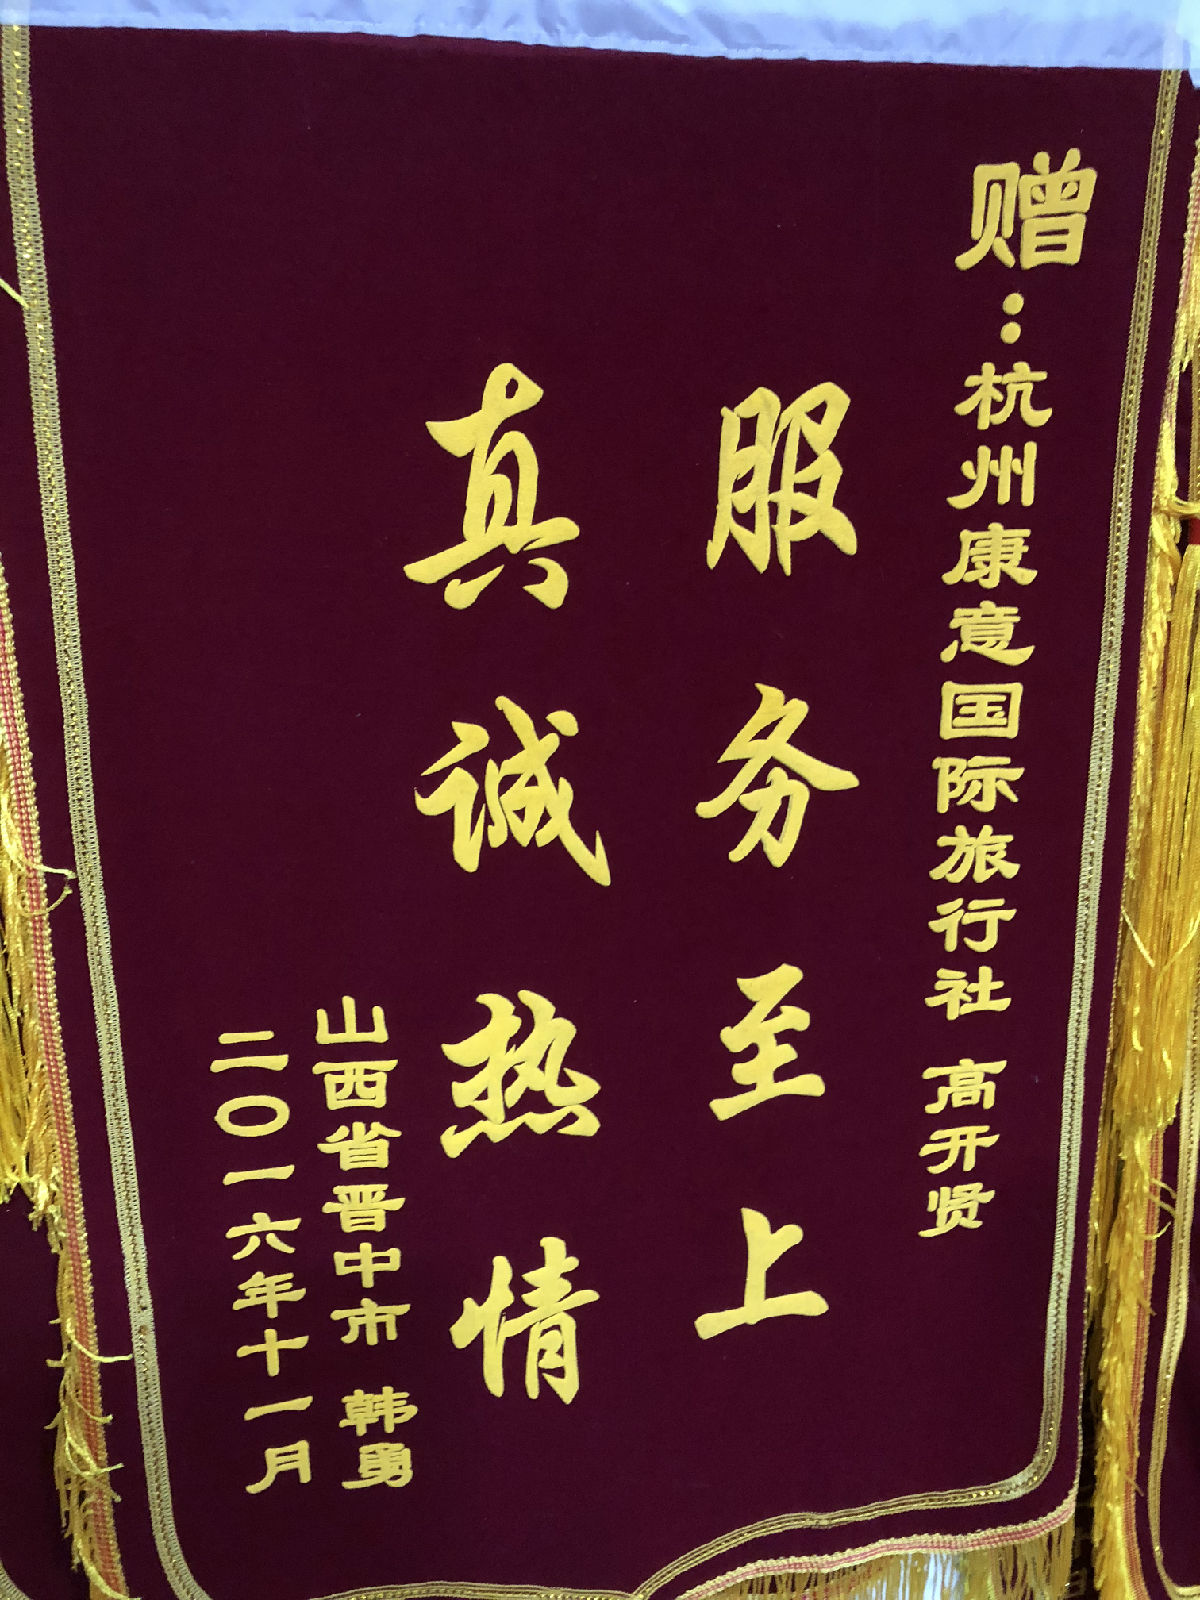 赠：杭州康意国际旅行社 高开贤
服务至上
真诚热情
山西省晋中市 韩勇
二〇一六年十一月